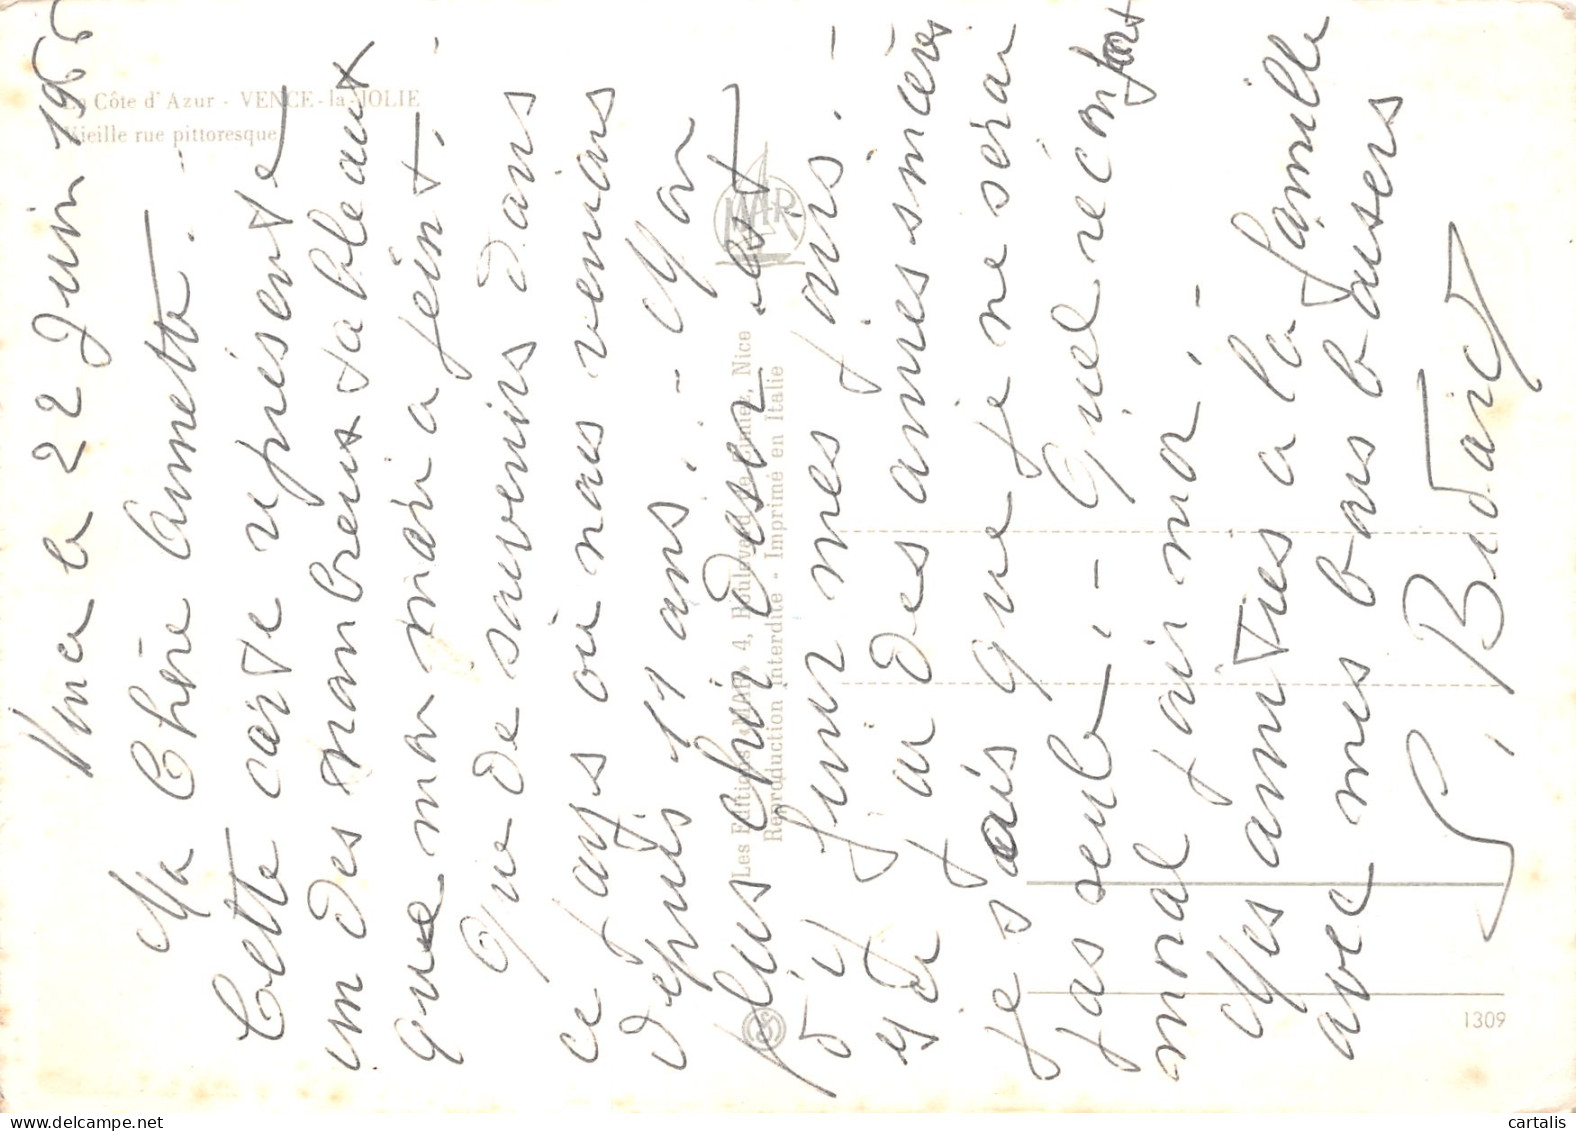 La Côte d'Azur - VENCE-la-JOLIE
Vieille rue pittoresque
Vence le 22 Juin 1966
Ma Chère Annette.
Cette carte représente
un des nombreux tableaux
que mon mari a peint.
Que de souvenirs dans
ce pays où nous venions
depuis 11 ans. - Mon
plus cher désir est
d'y finir mes jours. -
et j'ai des amies sincères
je sais que je ne serai
pas seule. - Quel réconfort
moral pour moi. -
Mes amitiés à la famille
avec mes bons baisers
S. Bidard
Les Editions «MAR» 4, Boulevard de Cimiez, Nice
Reproduction interdite - Imprimé en Italie
MAR
1309
cartalis.com